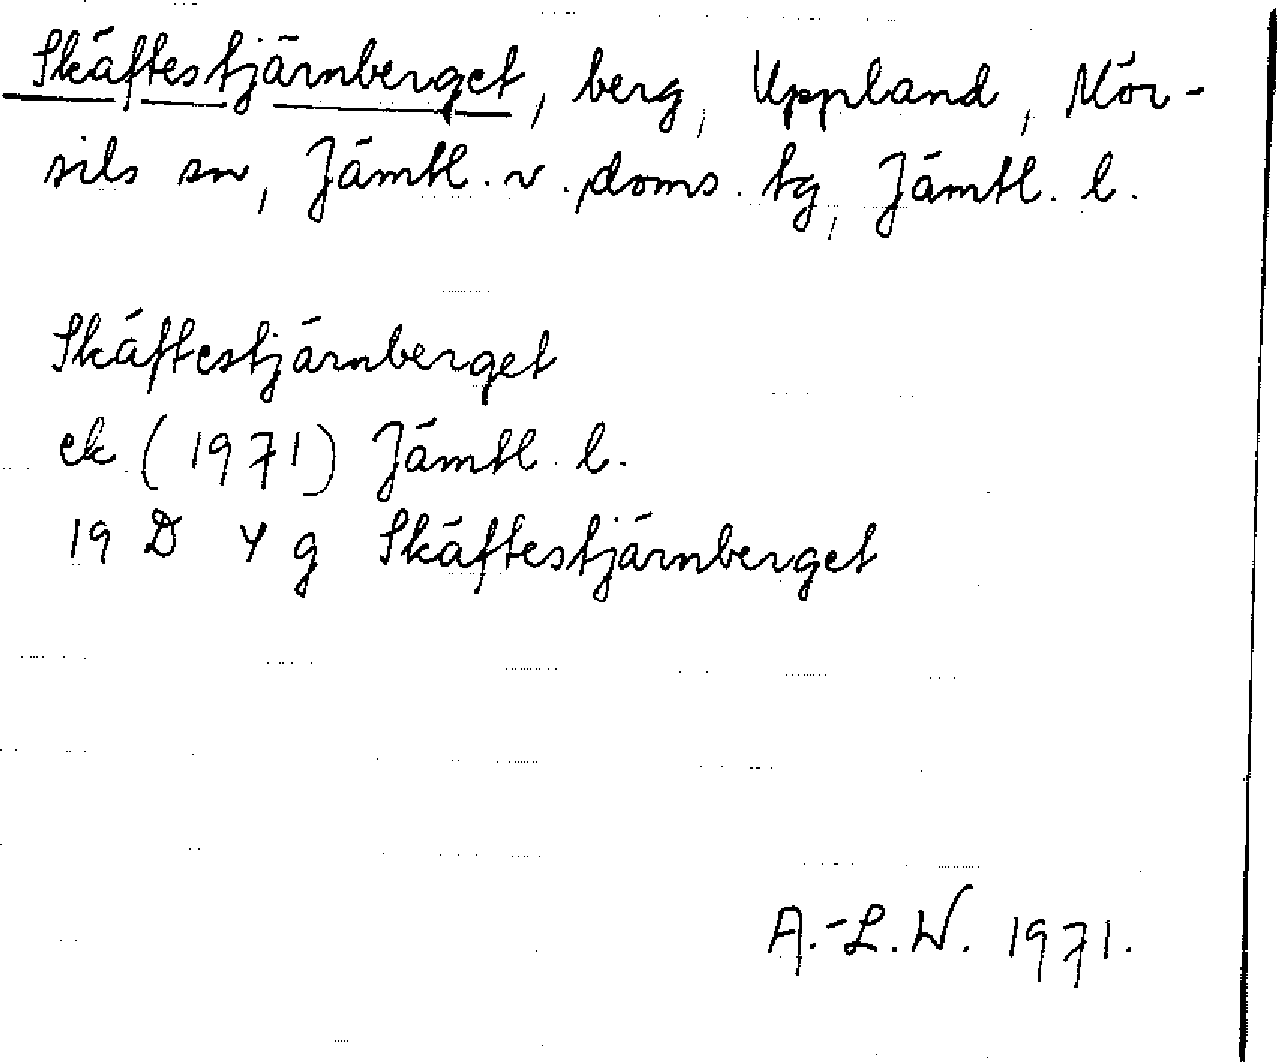 Skäftestjärnberget, berg, Uppland, Mör-
sils sn, Jämtl. v. doms. tg, Jämtl. l.
Skäftestjärnberget
ek (1971) Jämtl. l.
19 D 4 g Skäftestjärnberget
A.-L.W. 1971.